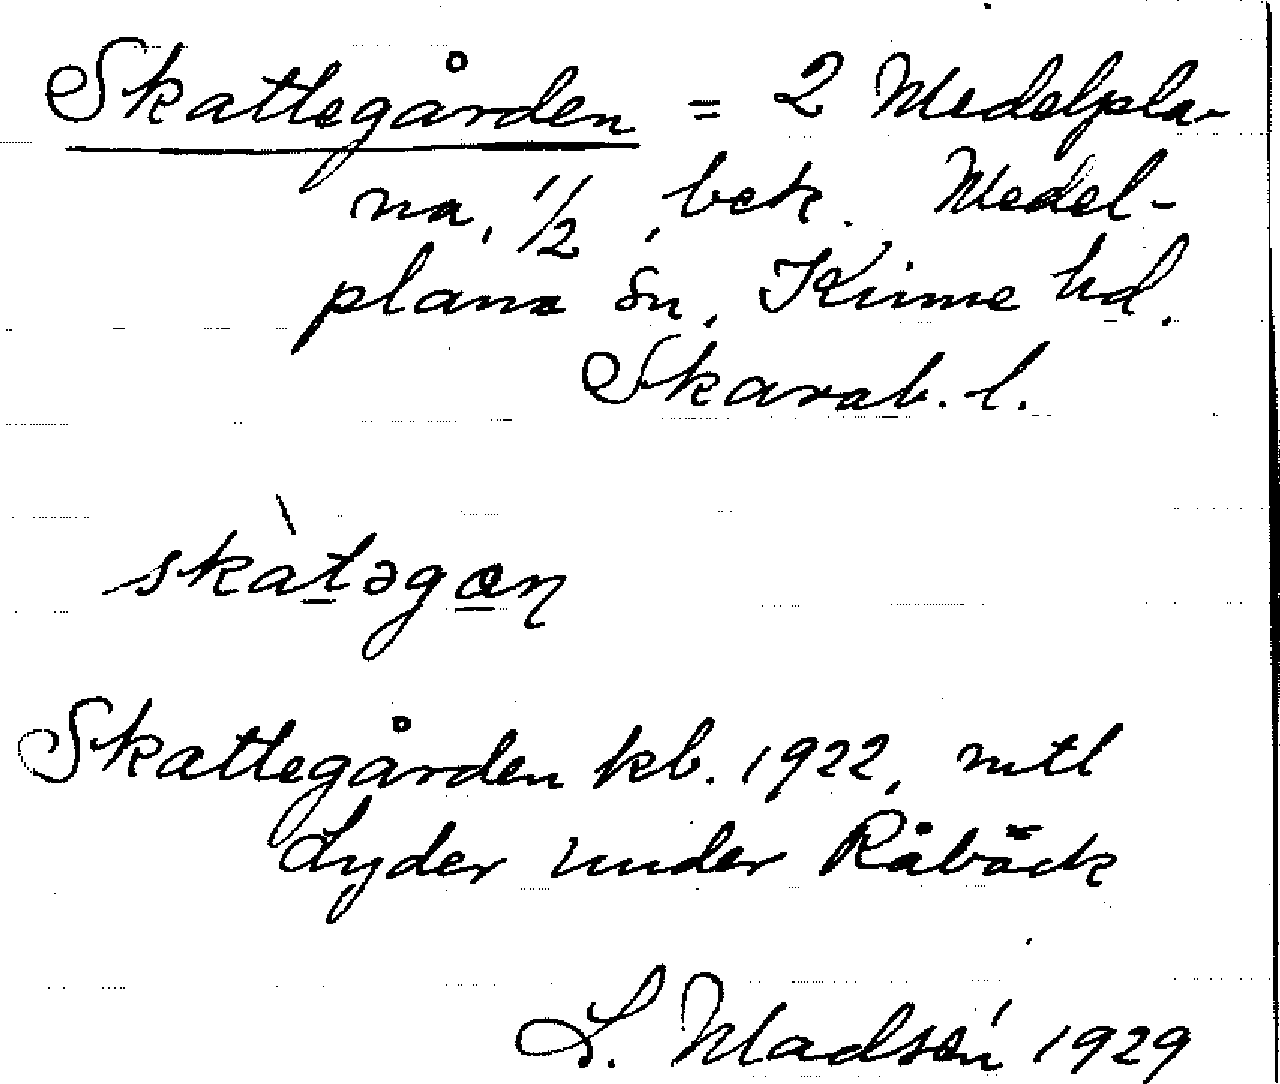 Skattegården = 2 Medelpla-
na, 1/2, bek. Medel-
plana sn, Kinne hd.
Skarab. l.
skàtəgɑn̨
Skattegården kb. 1922, mtl
Lyder under Råbäck
L. Madsén 1929